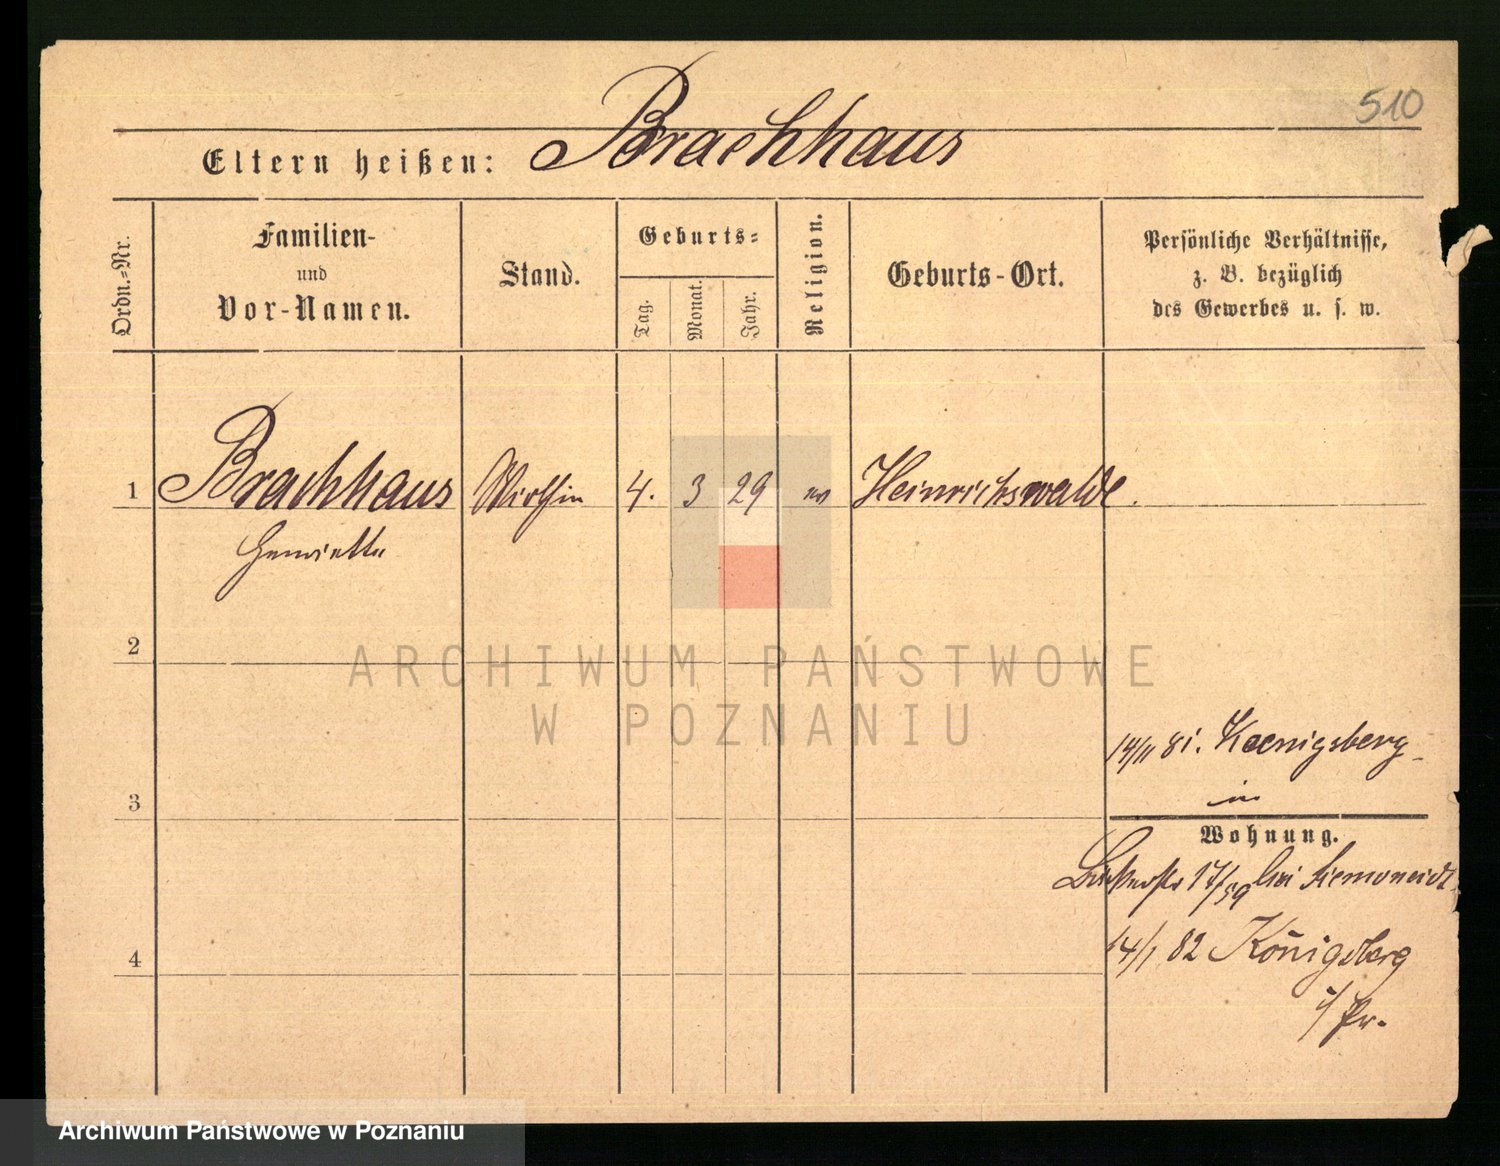 510
Eltern heißen: Brachhaus
Ordn.-Nr.
Familien-
und
Vor-Namen.
Stand.
Geburts-
Tag.
Monat.
Jahr.
Religion.
Geburts-Ort.
Persönliche Verhältnisse,
z. B. bezüglich
des Gewerbes u. s. w.
1 Brachhaus Wirthin 4. 3 29 ev Heinrichswalde.
Henriette
2
ARCHIWUM PAŃSTWOWE
W POZNANIU
14/11 81. Koenigsberg
in
3
Wohnung.
17/59 bei
14/1 82 Königsberg
4
i/Pr.
Archiwum Państwowe w Poznaniu